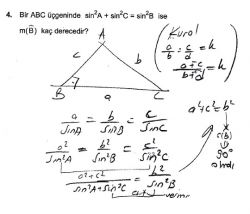 4. Bir ABC üçgeninde sin²A + sin²C = sin²B ise
m(B̂) kaç derecedir?
(Kural
a/b = c/d = k
a+c/b+d = k)
A
c
b
B
C
a
a/sinA = b/sinB = c/sinC
a²+c²=b²
a²/sin²A = b²/sin²B = c²/sin²C
s(B)
90°
a²+c²/sin²A+sin²C = b²/sin²B